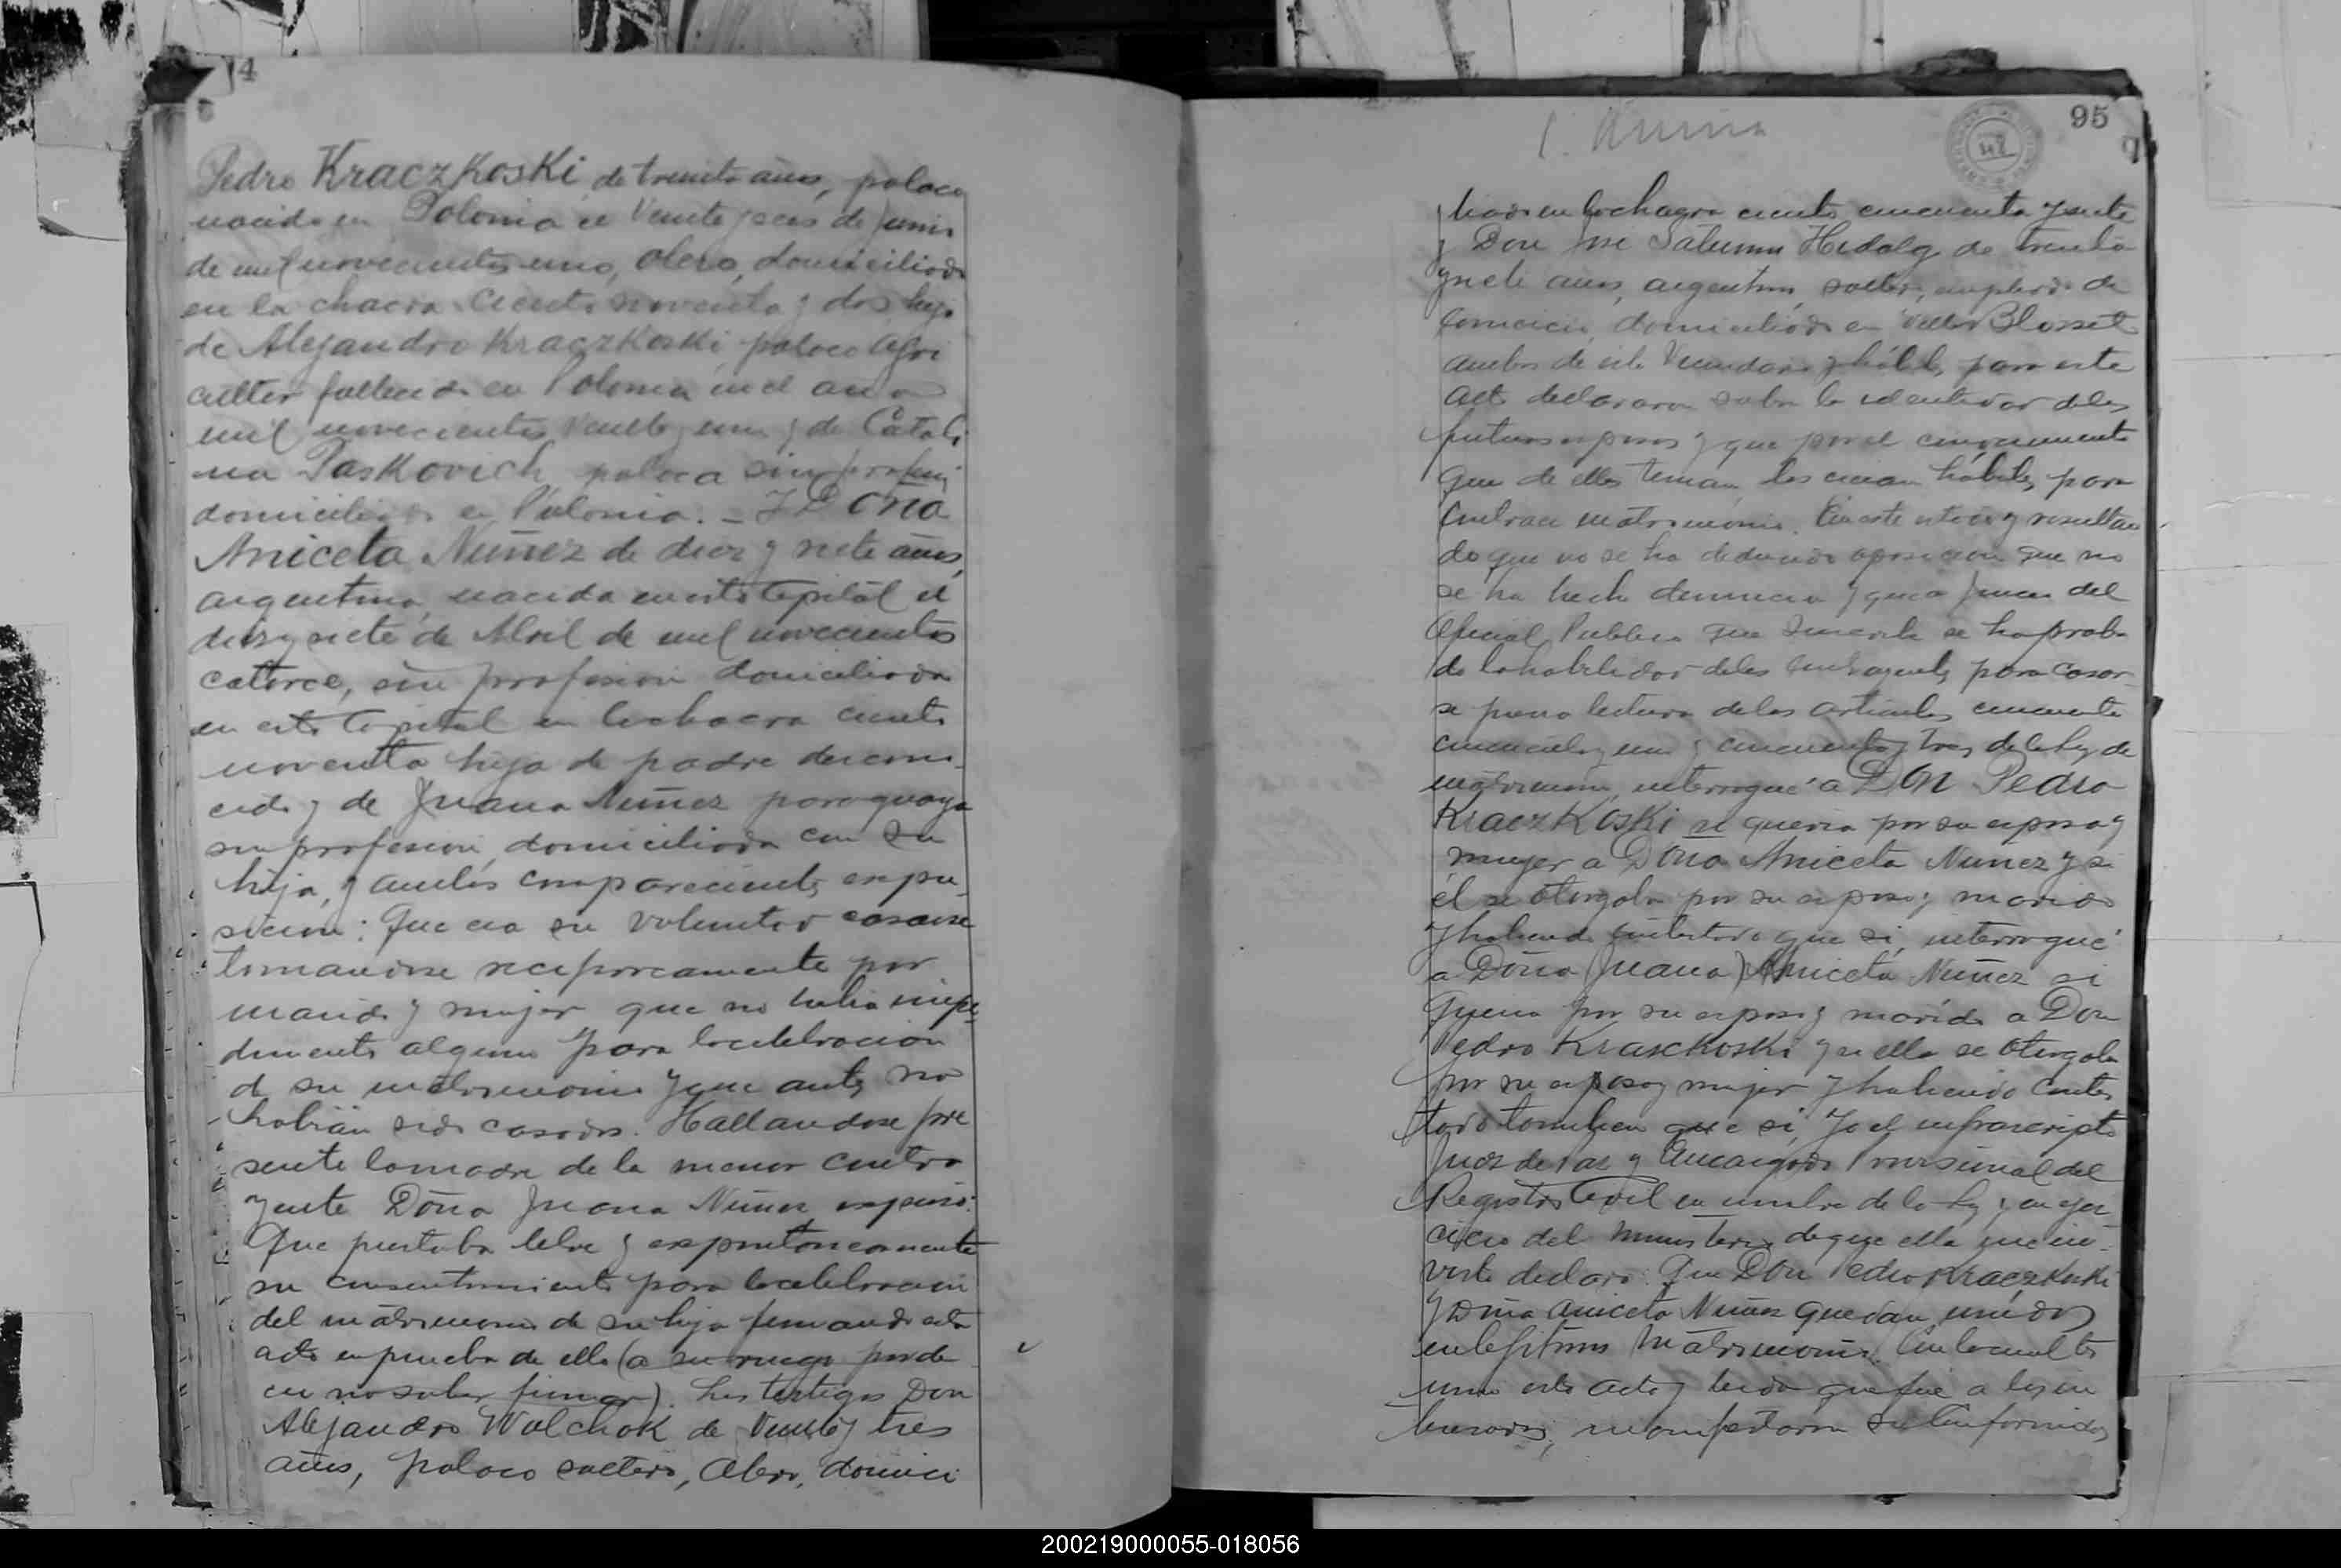 4
Pedro Kraczkoski de treinta años, polaco
nacido en Polonia el Veinte y seis de Junio
de mil novecientos uno, Olero, domiciliado
en la chacra Ciento noventa y dos hijo
de Alejandro Kraczkoski polaco agri
cultor fallecido en Polonia en el año
mil novecientos veinte y uno y de Catali
na Paskovich polaca sin profesión
domiciliada en Polonia. - Y DOÑA
Aniceta Nuñez de diez y siete años,
argentina, nacida en esta Capital el
diez y siete de Abril de mil novecientos
catorce, sin profesión domiciliada
en esta Capital en la chacra ciento
noventa hija de padre descono
cido y de Juana Nuñez paraguaya
sin profesion, domiciliada con su
hija, y ambos comparecientes expu
sieron: Que era su voluntad casarse
tomandose reciprocamente por
marido y mujer que no habia impe
dimento alguno para la celebracion
de su matrimonio y que antes no
habian sido casados. Hallandose pre
sente la madre de la menor contra
yente Doña Juana Nuñez expuso:
Que prestaba libre y expontoneamente
su consentimiento para la celebracion
del matrimonio de su hija firmando esta
acta en prueba de ello (a su ruego por de
cir no saber firmar). Los testigos Don
Alejandro Wolchok de Veinte y tres
años, polaco soltero, Olero, domici
95
liado en la chacra ciento cincuenta y siete
y Don José Saturnino Hidalgo de treinta
y siete años, argentino, soltero, empleado de
Comercio, domiciliado en Villa Blosset
ambos de este Vecindario y hábiles para este
acto declararon sobre la identidad de los
futuros esposos y que por el conocimiento
que de ellos tenian los creian hábiles para
Contraer matrimonio. En este estado y resultan
do que no se ha deducido oposicion que no
se ha hecho denuncia y que a juicio del
Oficial Publico que suscribe se ha proba
do la habilidad de los contrayentes para casar
se previa lectura de los articulos cincuenta
cincuenta y uno y cincuenta y tres de la ley de
matrimonio, interrogué a DON Pedro
Kraczkoski si queria por su esposa y
mujer a Doña Aniceta Nuñez y si
él se otorgaba por su esposo y marido
y habiendo contestado que si, interrogué
a Doña (Juana) Aniceta Nuñez si
queria por su esposo y marido a Don
Pedro Kraschoski y si ella se otorgaba
por su esposa y mujer y habiendo contes
tado tambien que si, Yo el infrascripto
Juez de Paz y Encargado Provisional del
Registro Civil en nombre de la ley y en ejer
cicio del ministerio de que ella me in
viste declaro: Que Don Pedro Kraczkoski
y Doña Aniceta Nuñez quedan unidos
en legitimo Matrimonio. Con lo cual ter
minó este acto y leida que fue a los in
teresados, manifestaron su conformidad
200219000055-018056